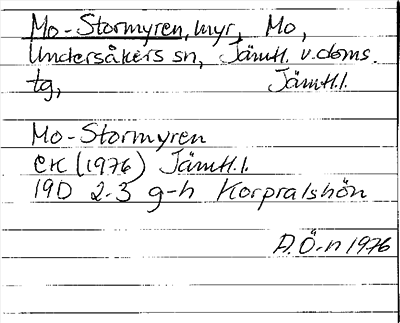 Mo-Stormyren, myr, Mo,
Undersåkers sn, Jämtl. v. doms.
tg, Jämtl.l.
Mo-Stormyren
EK (1976) Jämtl.l.
19D 2-3 g-h Korpralshön
A.Ö-n 1976